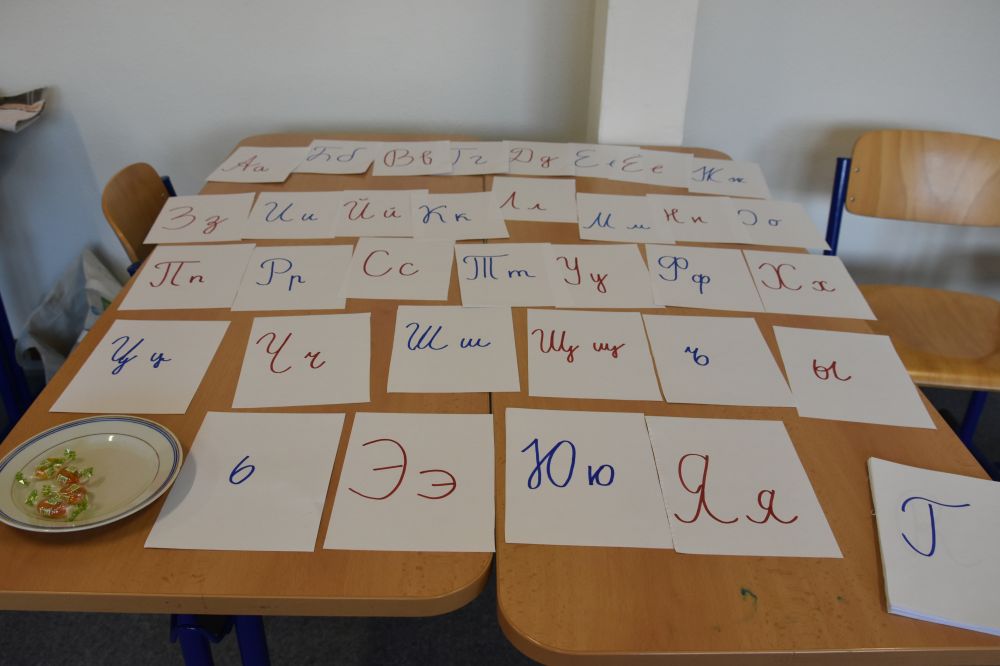 Аа Бб Вв Гг Дд Ее Ее Жж
Зз Ии Йй Кк Лл Мм Нн Оо
Пп Рр Сс Тт Уу Фф Хх
Цц Чч Шш Щщ ъ ы
ь Ээ Юю Яя Г